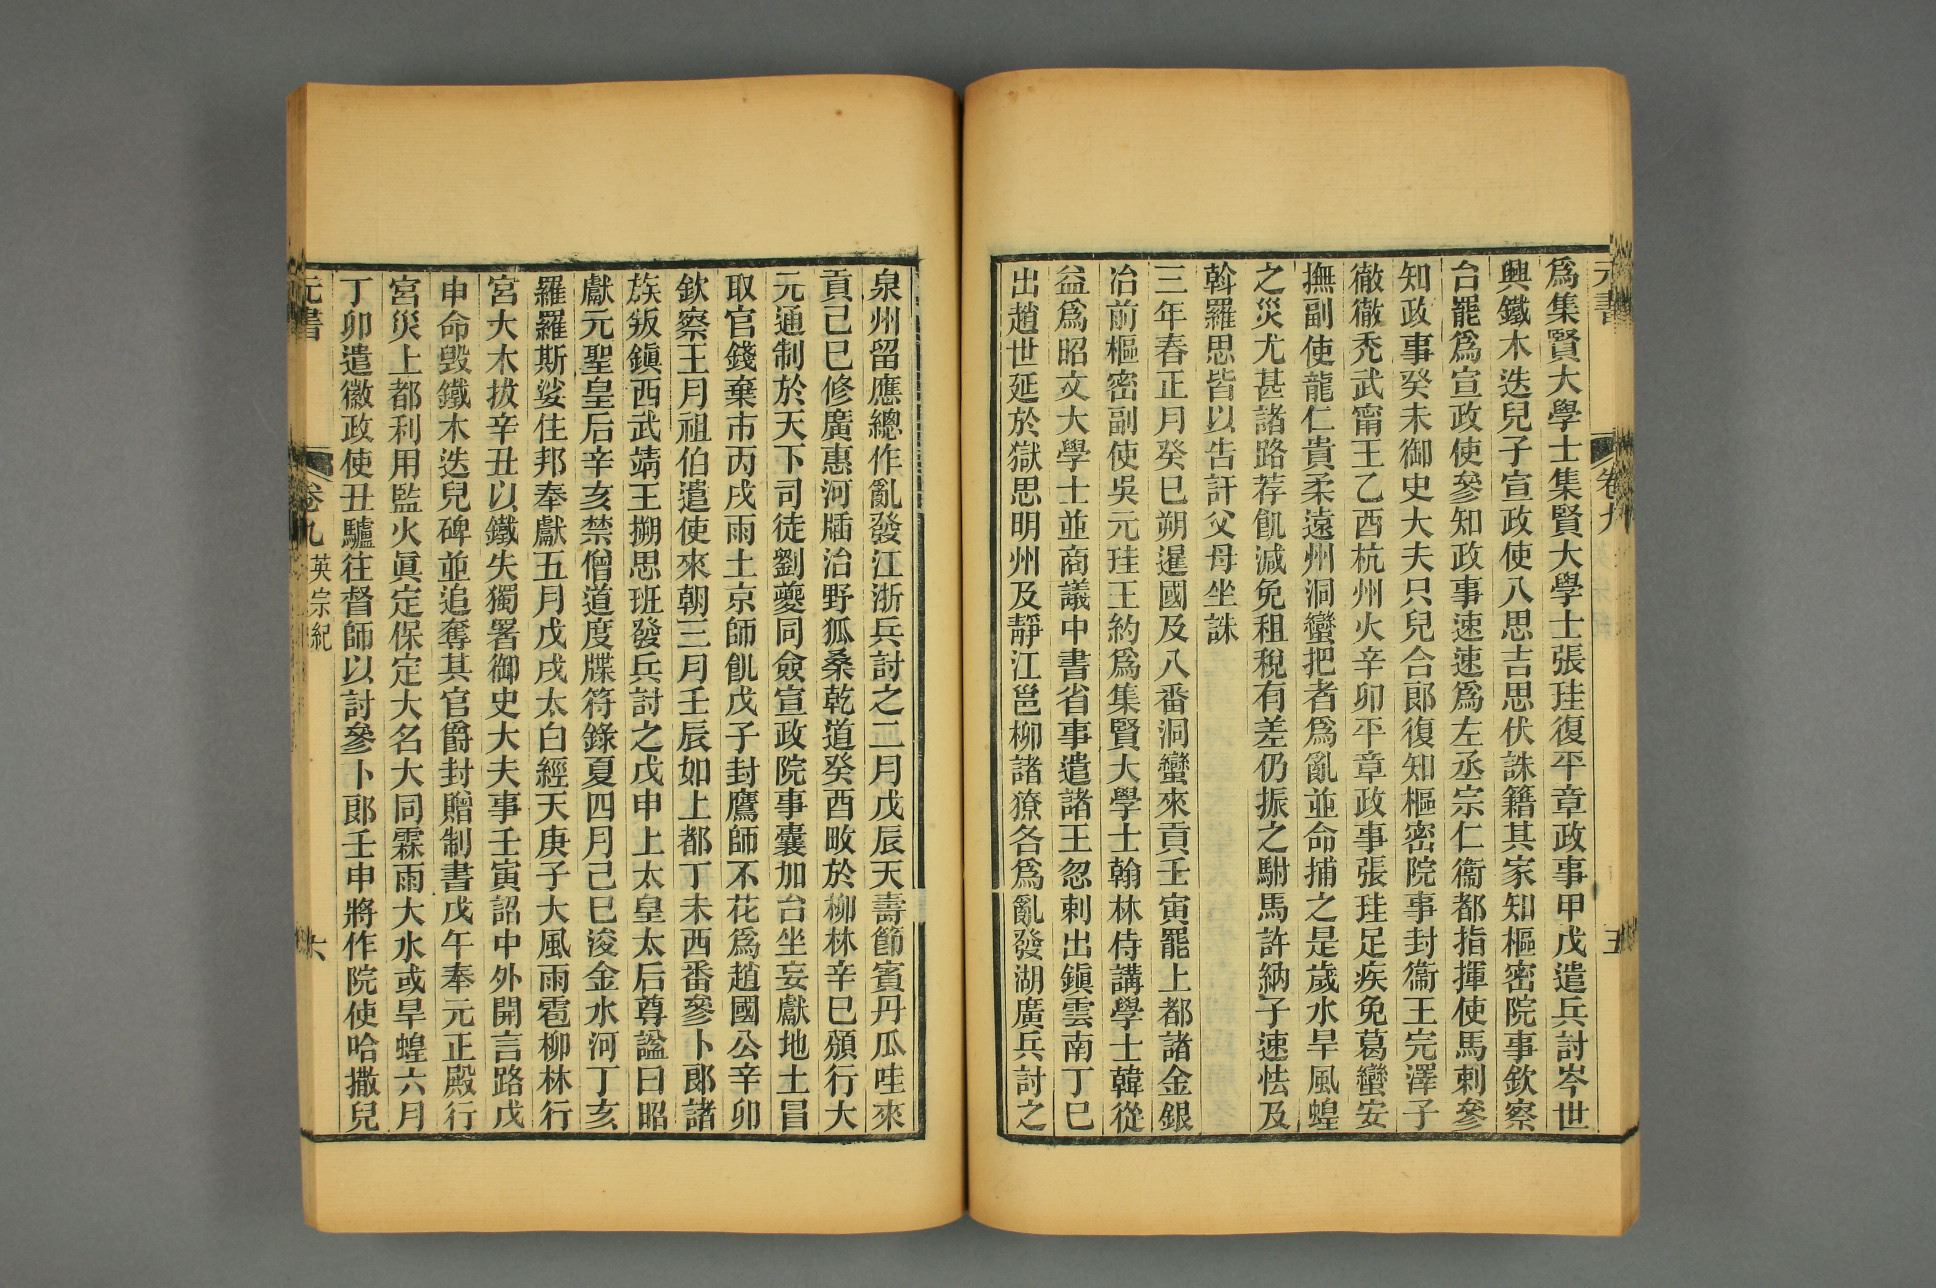 元書
卷九
五
爲集賢大學士集賢大學士張珪復平章政事甲戌遣兵討岑世
興鐵木迭兒子宣政使八思吉思伏誅籍其家知樞密院事欽察
台罷爲宣政使參知政事速速爲左丞宗仁衞都指揮使馬剌參
知政事癸未御史大夫只兒合郎復知樞密院事封衞王完澤子
徹徹禿武甯王乙酉杭州火辛卯平章政事張珪足疾免葛蠻安
撫副使龍仁貴柔遠州洞蠻把者爲亂並命捕之是歲水旱風蝗
之災尤甚諸路荐飢減免租稅有差仍振之駙馬許納子速怯及
斡羅思皆以告訐父母坐誅
三年春正月癸巳朔暹國及八番洞蠻來貢壬寅罷上都諸金銀
冶前樞密副使吳元珪王約爲集賢大學士翰林侍講學士韓從
益爲昭文大學士並商議中書省事遣諸王忽剌出鎭雲南丁巳
出趙世延於獄思明州及靜江邕柳諸獠各爲亂發湖廣兵討之
泉州留應總作亂發江浙兵討之二月戊辰天壽節賓丹瓜哇來
貢己巳修廣惠河牐治野狐桑乾道癸酉畋於柳林辛巳頒行大
元通制於天下司徒劉夔同僉宣政院事囊加台坐妄獻地土冒
取官錢棄市丙戌雨土京師飢戊子封鷹師不花爲趙國公辛卯
欽察王月祖伯遣使來朝三月壬辰如上都丁未西番參卜郎諸
族叛鎭西武靖王搠思班發兵討之戊申上太皇太后尊諡曰昭
獻元聖皇后辛亥禁僧道度牒符錄夏四月己巳浚金水河丁亥
羅羅斯娑住邦奉獻五月戊戌太白經天庚子大風雨雹柳林行
宮大木拔辛丑以鐵失獨署御史大夫事壬寅詔中外開言路戊
申命毀鐵木迭兒碑並追奪其官爵封贈制書戊午奉元正殿行
宮災上都利用監火眞定保定大名大同霖雨大水或旱蝗六月
丁卯遣徽政使丑驢往督師以討參卜郎壬申將作院使哈撒兒
元書
卷九
英宗紀
六